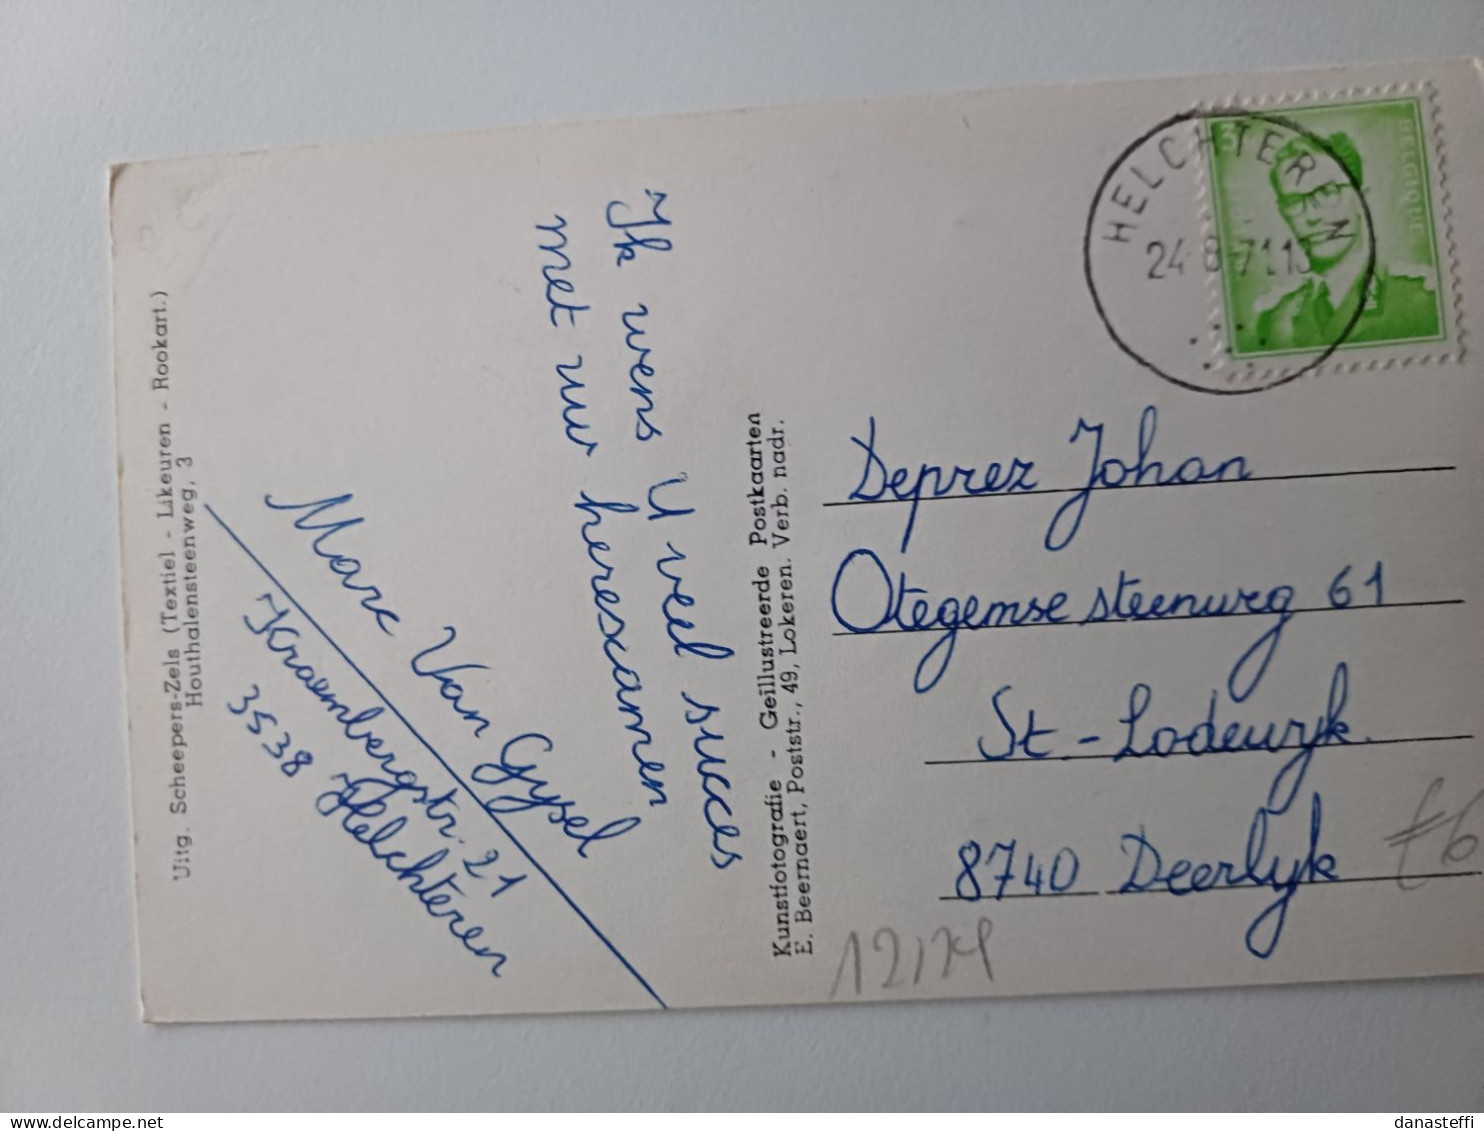 Uitg. Scheepers-Zels (Textiel - Likeuren - Rookart.)
Houthalensteenweg, 3
Ik wens U veel succes
met uw herexamen
Marc Van Gysel
Kraembergstr. 21
3538 Helchteren
Kunstfotografie - Geïllustreerde Postkaarten
E. Beernaert, Poststr., 49, Lokeren. Verb. nadr.
HELCHTEREN
24-8-71.13
3
BELGIQUE
Deprez Johan
Otegemse steenweg 61
St-Lodewyk
8740 Deerlyk
danasteffi